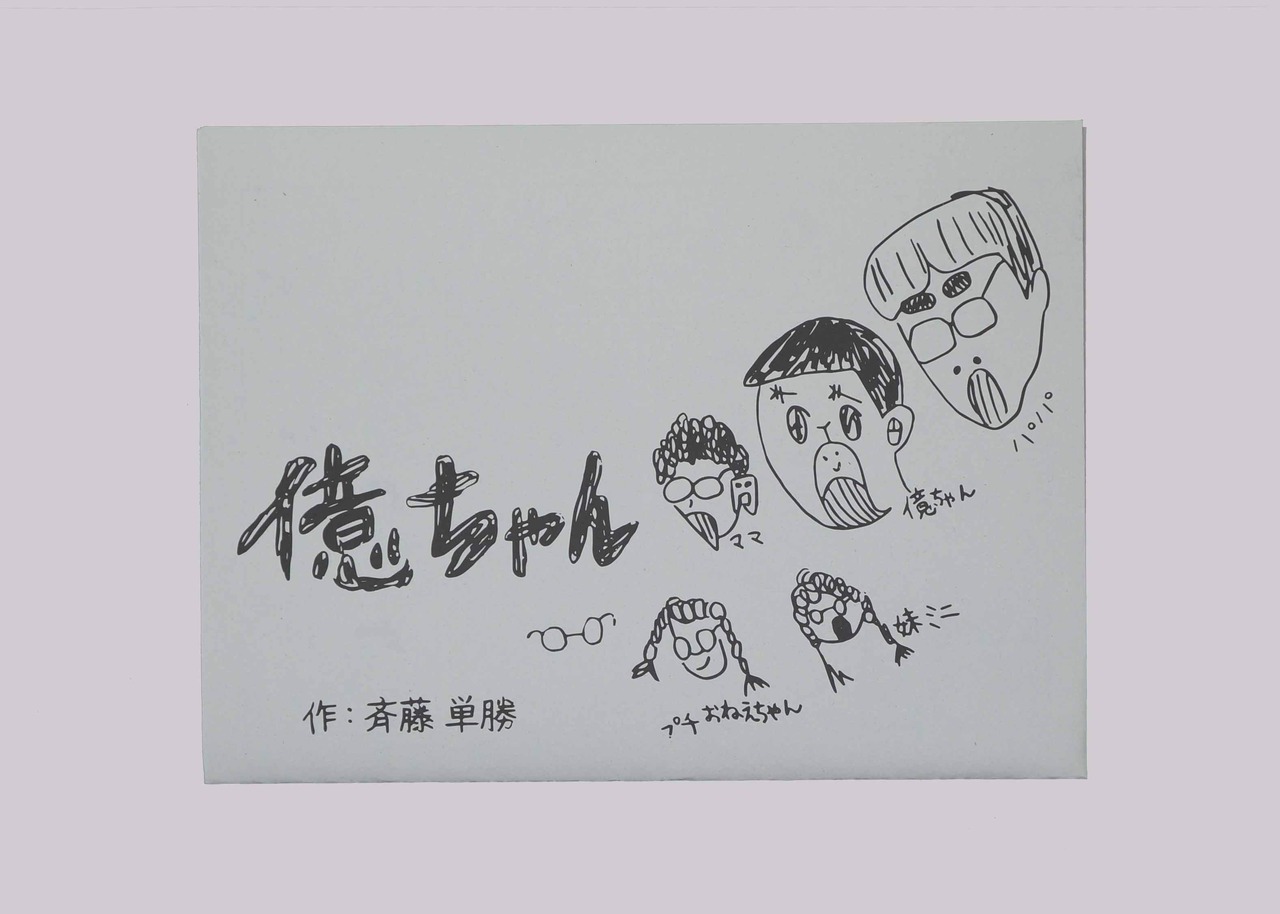 億ちゃん
作：斉藤 単勝
パパ
億ちゃん
ママ
妹ミニ
プチおねえちゃん